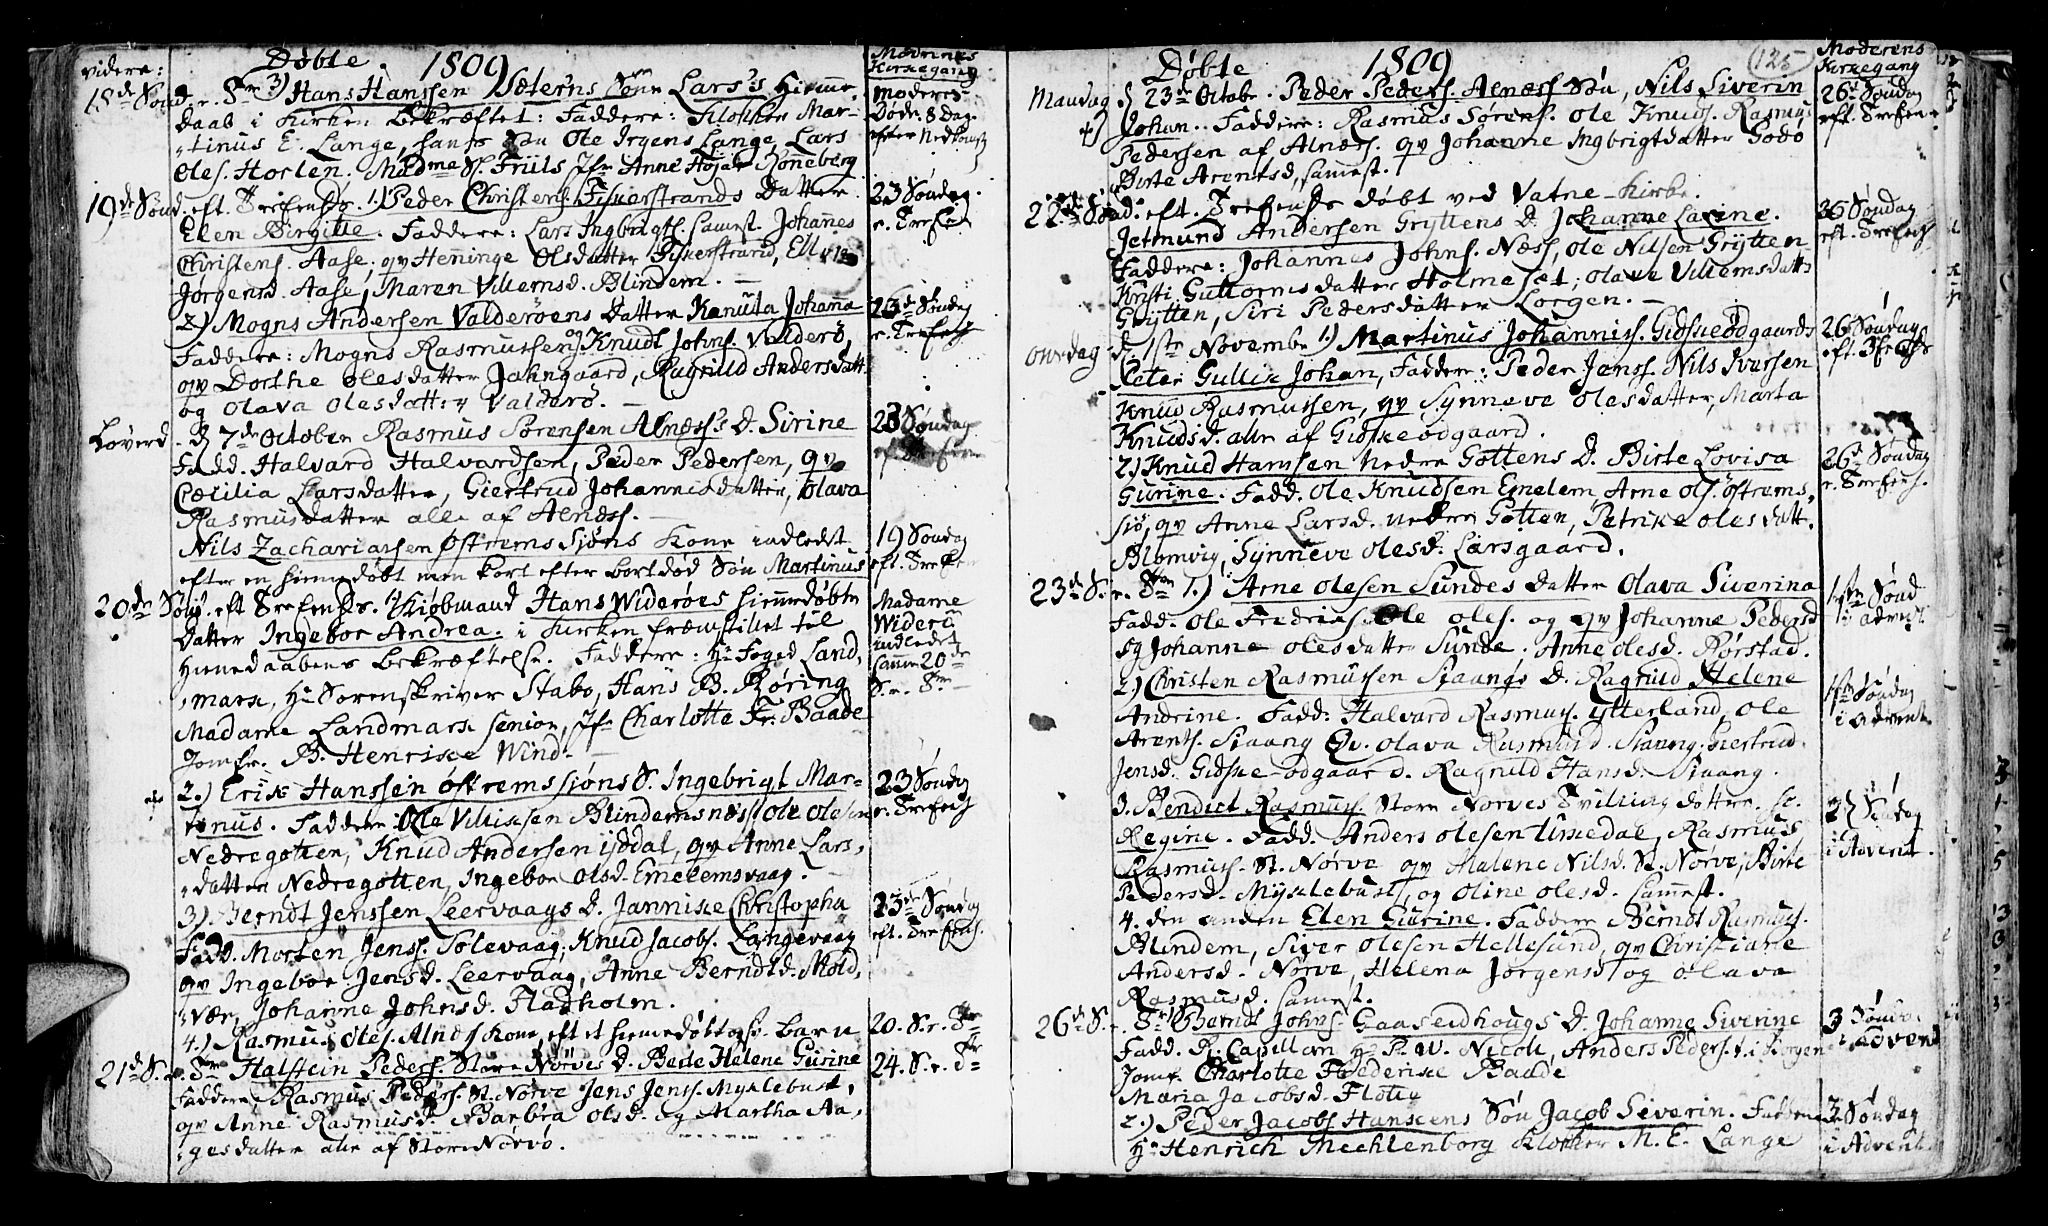 videre:
Døbte. 1809
Mødrenes
Kirkegang
18de Sønd. e. Srm 3) Hans Hanssen Sæterns Sønn Lars's Hiemme,
daab i Kirken bekræftet: Faddere: Klokker Mar-
tinus E. Lange, hans Søn Ole Irgens Lange, Lars
Oles. Horlen. Madme S. Friis Jfr Anne Højer Røneberg
moderes
Døde. 8 Dag.
efter Nedkomst
19de Sønd. eft. Trefends. 1) Peder Christens. Fiskerstrands Datter
Elen Birgitte. Faddere: Lars Ingbrigts. samest. Johanes
Christens. Aase; qv Henninge Olsdatter Fiskerstrand, Ellen
Jørgensd. Aase, Maren Villemsd. Blindem. —
23 Søndag.
e. Trefend
2) Mogns Andersen Valderøens Datter Kanuta Johanna
Faddere: Mogns Rasmussen og Knud Johns. Valderø,
qv Dorthe Olesdatter Jahngaard, Ragnild Andersdatt.
og Olava Olesdatter Valderø. —
26de Søndag
e. Trefends
Løverd. d. 7de October Rasmus Sørensen Alnæss's D. Sirine
Fadd. Halvard Halvardsen, Peder Pedersen, qv
Cæcilia Larsdatter, Giertrud Johannisdatter, Olava
Rasmusdatter alle af Alnæss. —
23 Søndag
ef. Trefen
Nils Zachariassen Østremssjøns Kone indledet
efter en hiemedøbt men kort efter bortdød Søn Martinus
19 Søndag
eft. Trefen
20de Sønd. eft Trefends. 1) Kiøbmand Hans Widerøes hiemedøbte
Datter Ingebor Andrea. i Kirken fremstillet til
Hiemedaabens bekræftelse. Faddere: Hr Foged Land,
mark, Hr Sorenskriver Stabo, Hans B. Røring
Madame Landmark senior, Jfr Charlotte Fr. Baade
Jomfr. B. Henrike Wind. —
Madame
Widerø
indledet
samme 20de
S. e. Srm
2.) Erik Hanssen Østremssjøns S. Ingebrigt Mar-
tinus. Faddere: Ole Villissen Blindemsnæs, Ole Olesen
Nedregotten, Knud Andersen ijddal, qv Anne Lars,
datter Nedregotten, Ingebor Olsd. Emelemsvaag.
23 Søndag
e. Trefends
3) Berndt Jenssen Leervaags D. Jannike Christopha
Fadd. Morten Jenss. Solevaag, Knud Jacobs. Langevaag
qv Ingebor Jensd. Leervaag, Anne Berndtd. Mold,
vær, Johanne Johnsd. Fladholm.
23de Søndag
eft. Trefens.
4.) Rasmus Oles. Alnæs Kone, eft et hiemedøbt Barn
20. S. e. Sr
21de S. e. Srm Halstein Peders. Store Nørves D. Berte Helene Gurine
Faddere Rasmus Peders. St. Nørve Jens Jenss. Myklebust,
qv Anne Rasmusd. Barbra Olsd. og Martha Aa,
gesdatter alle af Store Nørve.
24. S. e. Sr
Døbte 1809
125
Moderens
Kirkegang
Mandag d 23de Octobr. Peder Peders. Alness Søn, Nils Siverin
Johan. Faddere: Rasmus Sørens. Ole Knuds. Rasmus
Pedersen af Alness. qv Johanne Ingbrigtdatter Godø
Birte Arentsd, samest.
26de Søndag
eft. Trefen
22de Sønd. eft. Trefends døbt ved Vatne-Kirke.
Jetmund Andersen Gryttens D. Johanne Larine.
Faddere: Johannes Johns. Næss, Ole Nilsen Grytten
Kristi Guttormsdatter Holmeset; Olave Villemsdatt.
Grytten, Siri Pedersdatter Lorgen. —
26 Søndag
eft. Trefends
Onsdag d. 1ste November 1.) Martinus Johanniss. Gidskeødgaards
Peter Gullik Johan, Faddere: Peder Jenss. Nils Iversen
Knud Rasmussen, qv Synneve Olesdatter, Marta
Knudsd. alle af Gidskeødgaard.
26 Søndag
eft. Trefends
2.) Knud Hanssen Nedre Gottens D. Birte Lovisa
Gurine. Fadd. Ole Knudsen Emelem, Arne Ols. Østrems,
sjø, qv Anne Larsd. Nedre Gotten, Petrike Olesdatt.
Blomvig, Synneve Olesd. Larsgaard.
26de Søndag
e. Trefens.
23de S. e. Srm 1.) Arne Olesen Sundes Datter Olava Siverina
Fadd. Ole Fredriks. Ole Oles. og qv Johanne Pedersd
og Johanne Olesdatter Sunde. Anne Olesd. Rørstad.
1ste Sønd
i advent
2.) Christen Rasmussen Staangs D. Ragnild Helene
Andrine. Fadd: Halvard Rasmuss. Ytterland, Ole
Arents. Staang Qv. Olava Rasmusd. Staang, Giertrud
Jensd. Gidske-ødgaard. Ragnild Hansd. Staang.
1ste Søndag
i Advent
3. Bendict Rasmuss. Store Nørves Tvilling døttre.
Regine. Fadd. Anders Olesen Umedal, Rasmus
Rasmuss. St. Nørve qv Malene Nilsd. St. Nørve, Birte
Pedersd. Myklebust, og Oline Olesd. samest.
2 Søndag
i Advent.
4. den anden Elen Gurine. Faddere Berndt Rasmuss.
Blindem, Siver Olesen Hellesund, qv Christiane
Andersd. Nørve, Helena Jørgensd og Olava
Rasmusd. samest.
26de S. e. Srm 1) Bernt Johns. Gaaseidhougs D. Johanne Siverine
Fadd. R. Capellan Hr P. W. Nicoli, Anders Peders. i Borgen
Jomf. Charlotte Frederike Baade
Maria Jacobsd. Flote
3 Søndag
i Advent
2.) Peder Jacobs. Hanskens Søn Jacob Siverin. Faddere
Hr Henrich Mechlenborg Klokker M. E. Lange
3 Søndag
i Advent